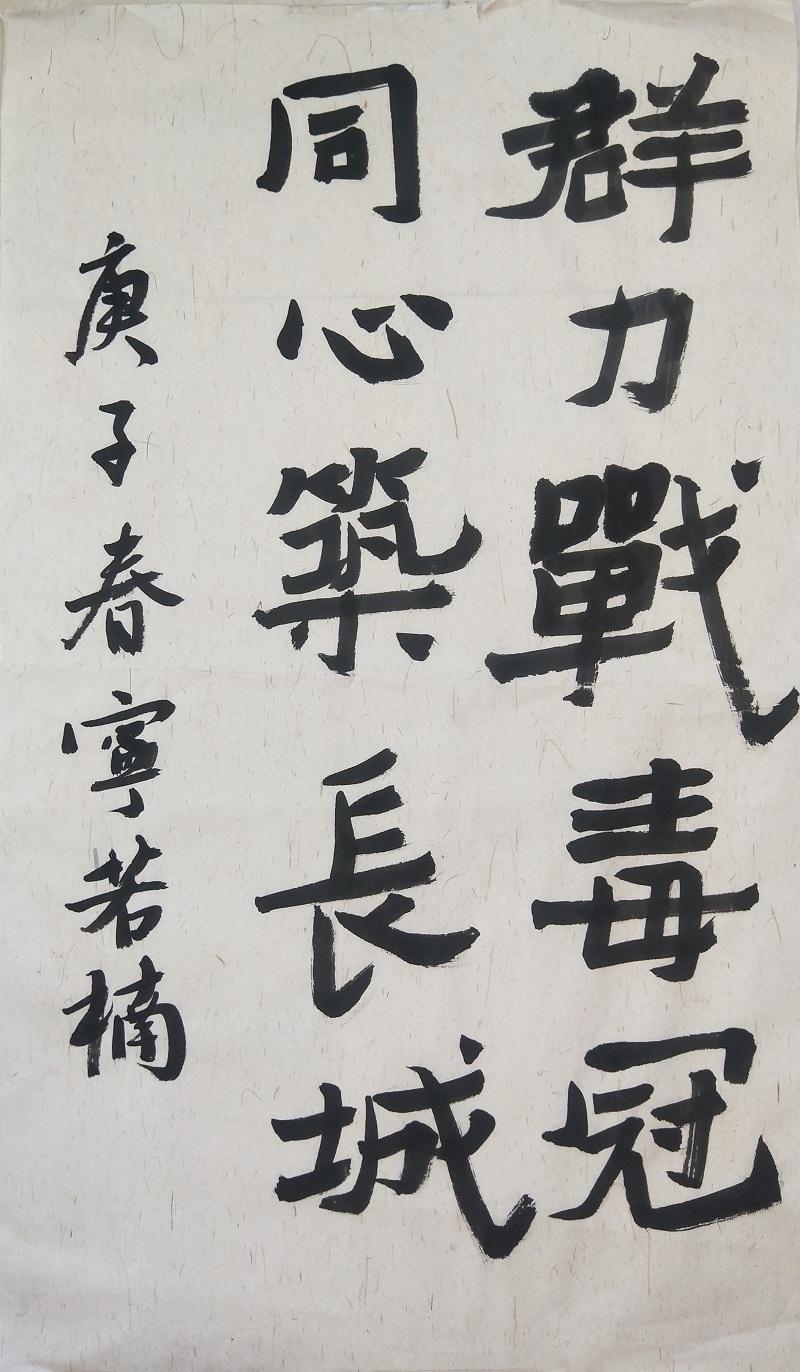 群力戰毒冠
同心築長城
庚子春寧若楠